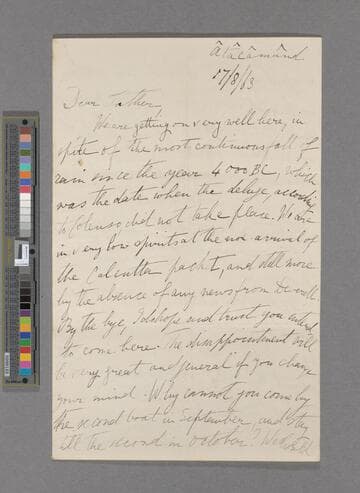 Ôtâcâmûnd
17/8/63
Dear Father,
We are getting on very well here, in
spite of the most continuous fall of
rain since the year 4000 BC, which
was the date when the deluge, according
to Colenso, did not take place. We are
in very low spirits at the non arrival of
the Calcutta packet, and still more
by the absence of any news from
By the bye, I do hope and trust you intend
to come here. The disappointment will
be very great and general if you change
your mind. Why cannot you come by
the second boat in September, and stay
till the second in October?